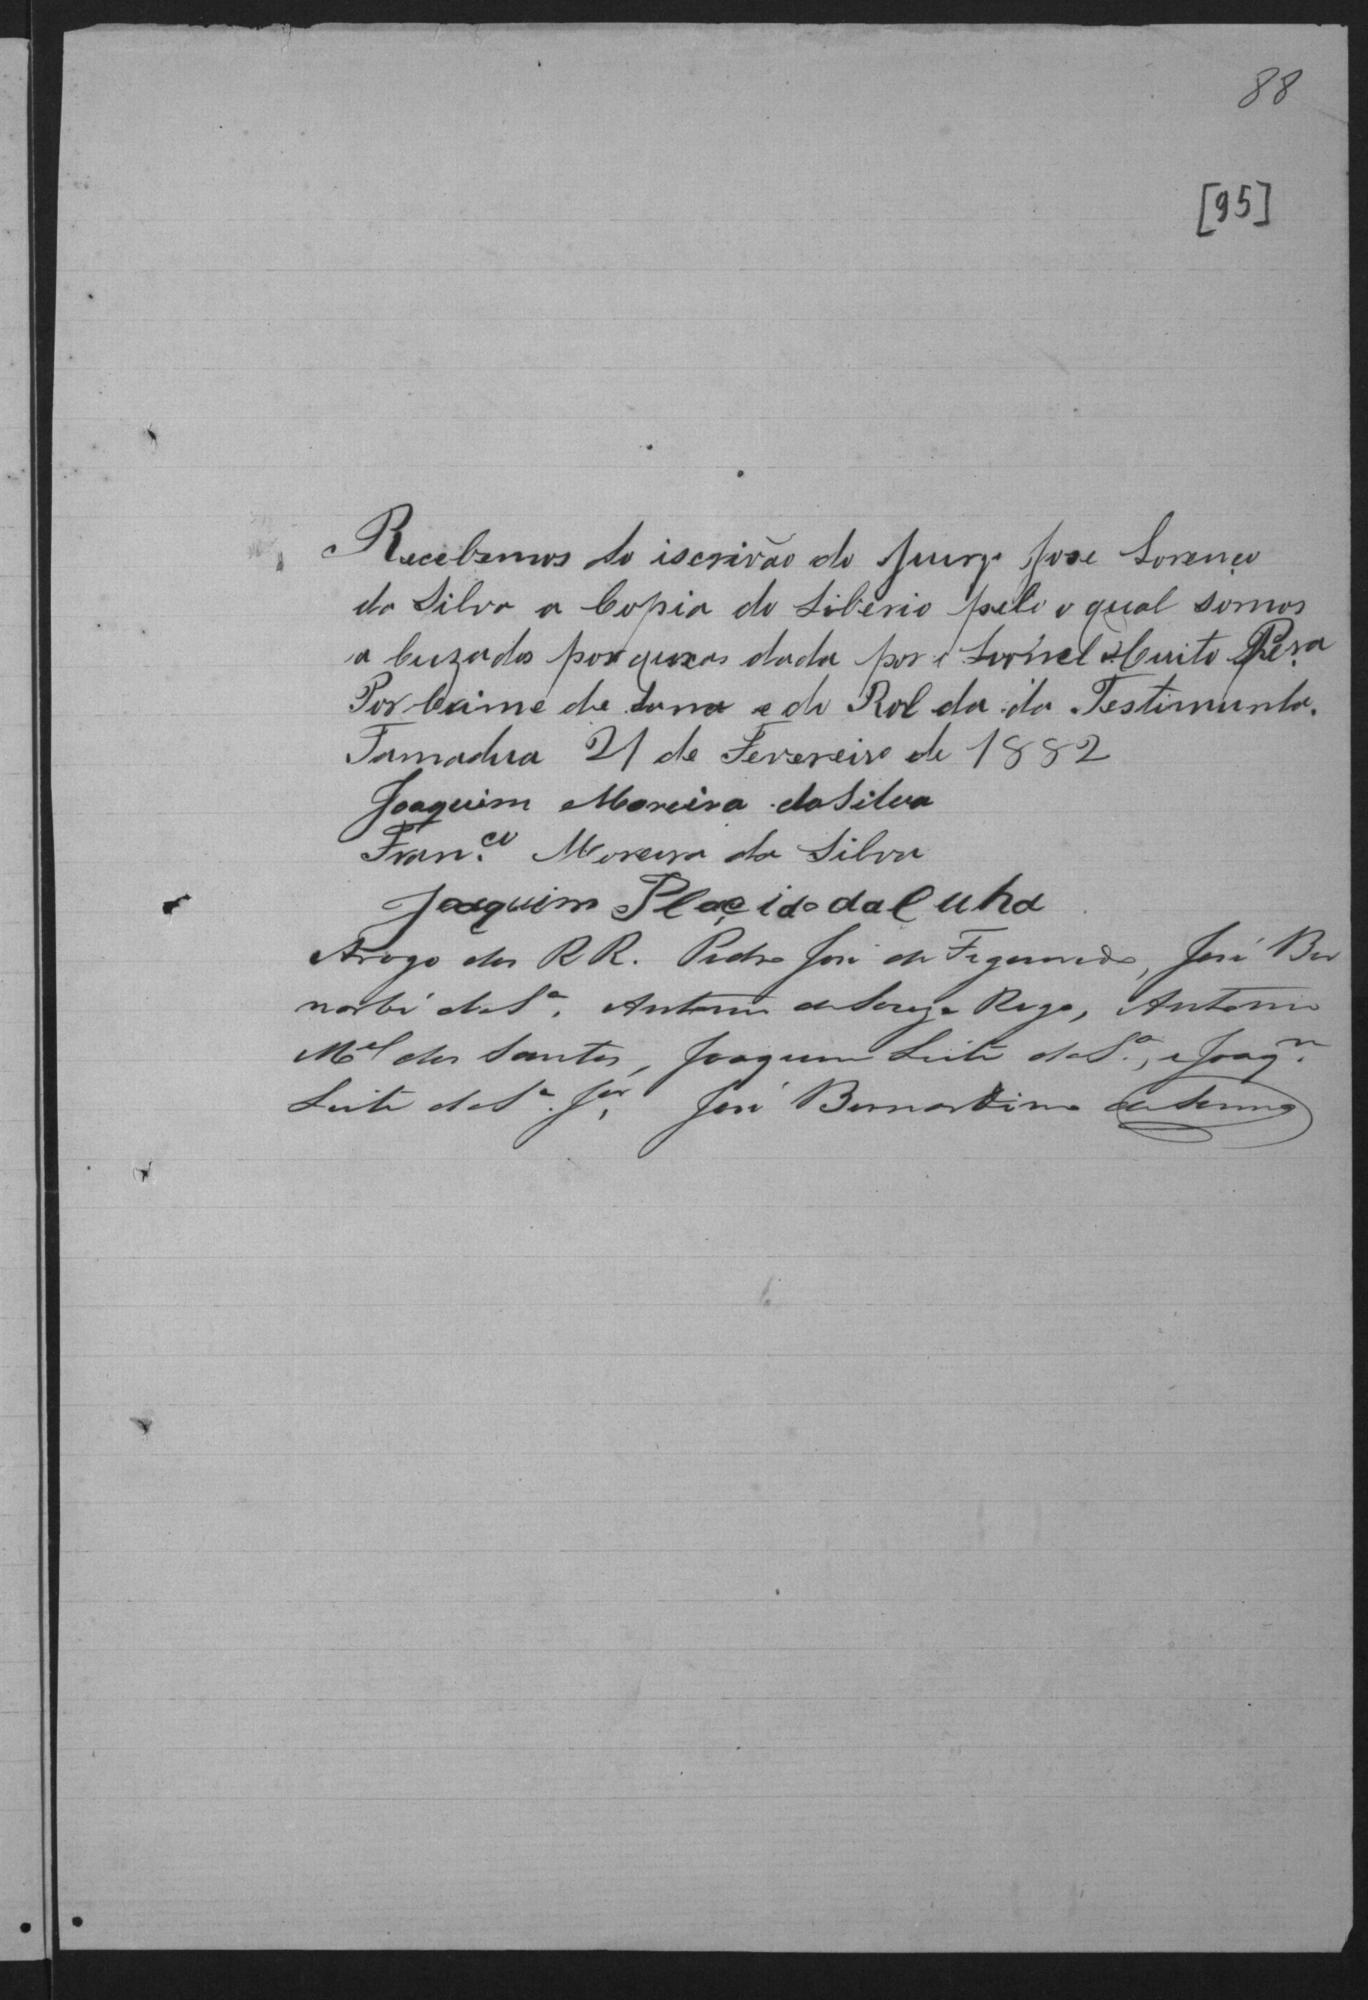 88
[95]
Recebemos do iscrivão do Jurz. Jose Lorenço
da Silva a Copia do Liberio pelo o qual somos
a cuzados por quexas dada por Muito Per.a
Por Crime de e do Rol da da Testimunha.
Tamadua 21 de Fevereiro de 1882
Joaquim Moreira da Silva
Fran.co Moreira da Silva
Joaquim Placido da Cunha
Arogo dos RR. Pedro José de Figueredo, José Ber
narbé da S.a, Antonio de Souza Rego, Antonio
M.el dos Santos, Joaquim Leite da S.a, e Joaq.m
Leite da S.a Jor, José Bernardino de Senna